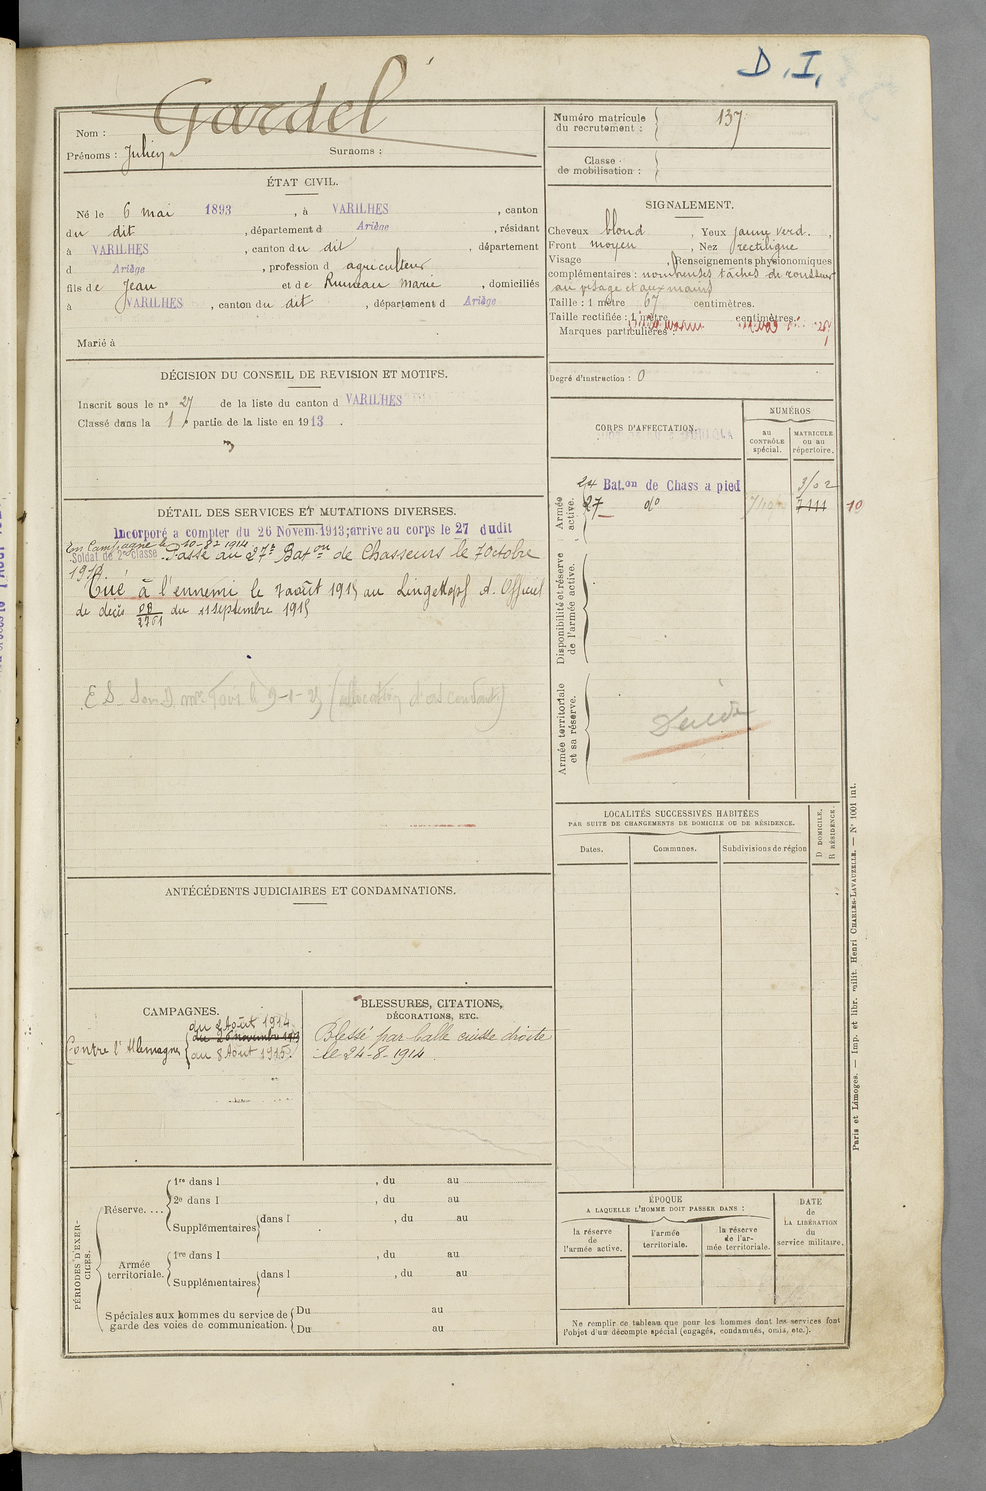 D.I.
Gardel
Nom :
Prénoms : Julien Surnoms :
Numéro matricule du recrutement : 137
Classe de mobilisation :
ÉTAT CIVIL.
Né le 6 mai 1893, à VARILHES, canton
du dit, département d Ariège, résidant
à VARILHES, canton du dit, département
d Ariège, profession d agriculteur
fils de Jean et de Ruineau Marie, domiciliés
à VARILHES, canton du dit, département d Ariège
Marié à
SIGNALEMENT.
Cheveux blond, Yeux jaune verd.,
Front moyen, Nez rectiligne
Visage, Renseignements physionomiques
complémentaires : nombreuses tâches de rousseur
au visage et aux mains
Taille : 1 mètre 67 centimètres.
Taille rectifiée : 1 mètre centimètres.
Marques particulières :
Degré d'instruction : 0
DÉCISION DU CONSEIL DE REVISION ET MOTIFS.
Inscrit sous le nº 27 de la liste du canton d VARILHES
Classé dans la 1 partie de la liste en 1913.
CORPS D'AFFECTATION.
NUMÉROS
au CONTRÔLE spécial.
MATRICULE ou au répertoire.
Armée active.
24 Bat.on de Chass a pied 3102
27 do 7111
10
Disponibilité et réserve de l'armée active.
Armée territoriale et sa réserve.
DÉTAIL DES SERVICES ET MUTATIONS DIVERSES.
Incorporé a compter du 26 Novem. 1913; arrive au corps le 27 dudit
En Campagne le 10-8-1914
Soldat de 2e classe. Passé au 27e Baton de Chasseurs le 7 octobre
1914.
Tué à l'ennemi le 7 août 1915 au Lingekopf A. Officiel
de décès PB/2761 du 11 septembre 1915
LOCALITÉS SUCCESSIVES HABITÉES
PAR SUITE DE CHANGEMENTS DE DOMICILE OU DE RÉSIDENCE.
Dates. Communes. Subdivisions de région
D DOMICILE.
R RÉSIDENCE.
ANTÉCÉDENTS JUDICIAIRES ET CONDAMNATIONS.
CAMPAGNES.
Contre l'Allemagne
du 2 Août 1914
du 26 novembre 1913
au 8 Août 1915.
BLESSURES, CITATIONS,
DÉCORATIONS, ETC.
Blessé par balle cuisse droite
le 24-8-1914.
PÉRIODES D'EXERCICES.
Réserve....
1re dans l , du au
2e dans l , du au
Supplémentaires dans l , du au
Armée territoriale.
1re dans l , du au
Supplémentaires dans l , du au
Spéciales aux hommes du service de garde des voies de communication.
Du au
Du au
ÉPOQUE
A LAQUELLE L'HOMME DOIT PASSER DANS :
la réserve de l'armée active.
l'armée territoriale.
la réserve de l'armée territoriale.
DATE de LA LIBÉRATION du service militaire.
Ne remplir ce tableau que pour les hommes dont les services font
l'objet d'un décompte spécial (engagés, condamnés, omis, etc.).
Paris et Limoges. — Imp. et libr. milit. Henri CHARLES-LAVAUZELLE. — Nº 1001 int.